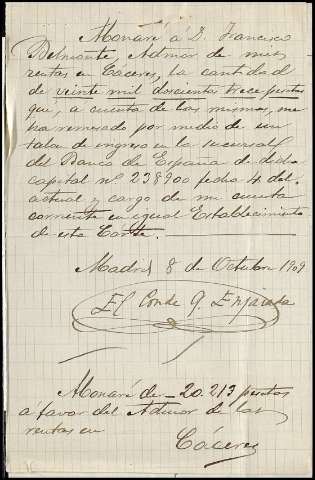 Abonaré á D. Francisco
Belmonte Admor de mis
rentas en Cáceres, la cantidad
de veinte mil doscientas trece pesetas
que, a cuenta de las mismas, me
ha remesado por medio de un
talon de ingreso en la sucursal
del Banco de España de dicha
capital nº 238900 fecha 4 del
actual y cargo de mi cuenta
corriente en igual Establecimiento
de esta Corte.
Madrid 8 de Octubre 1909
El Conde
Abonaré de 20.213 pesetas
á favor del Admor de las
rentas en
Cáceres